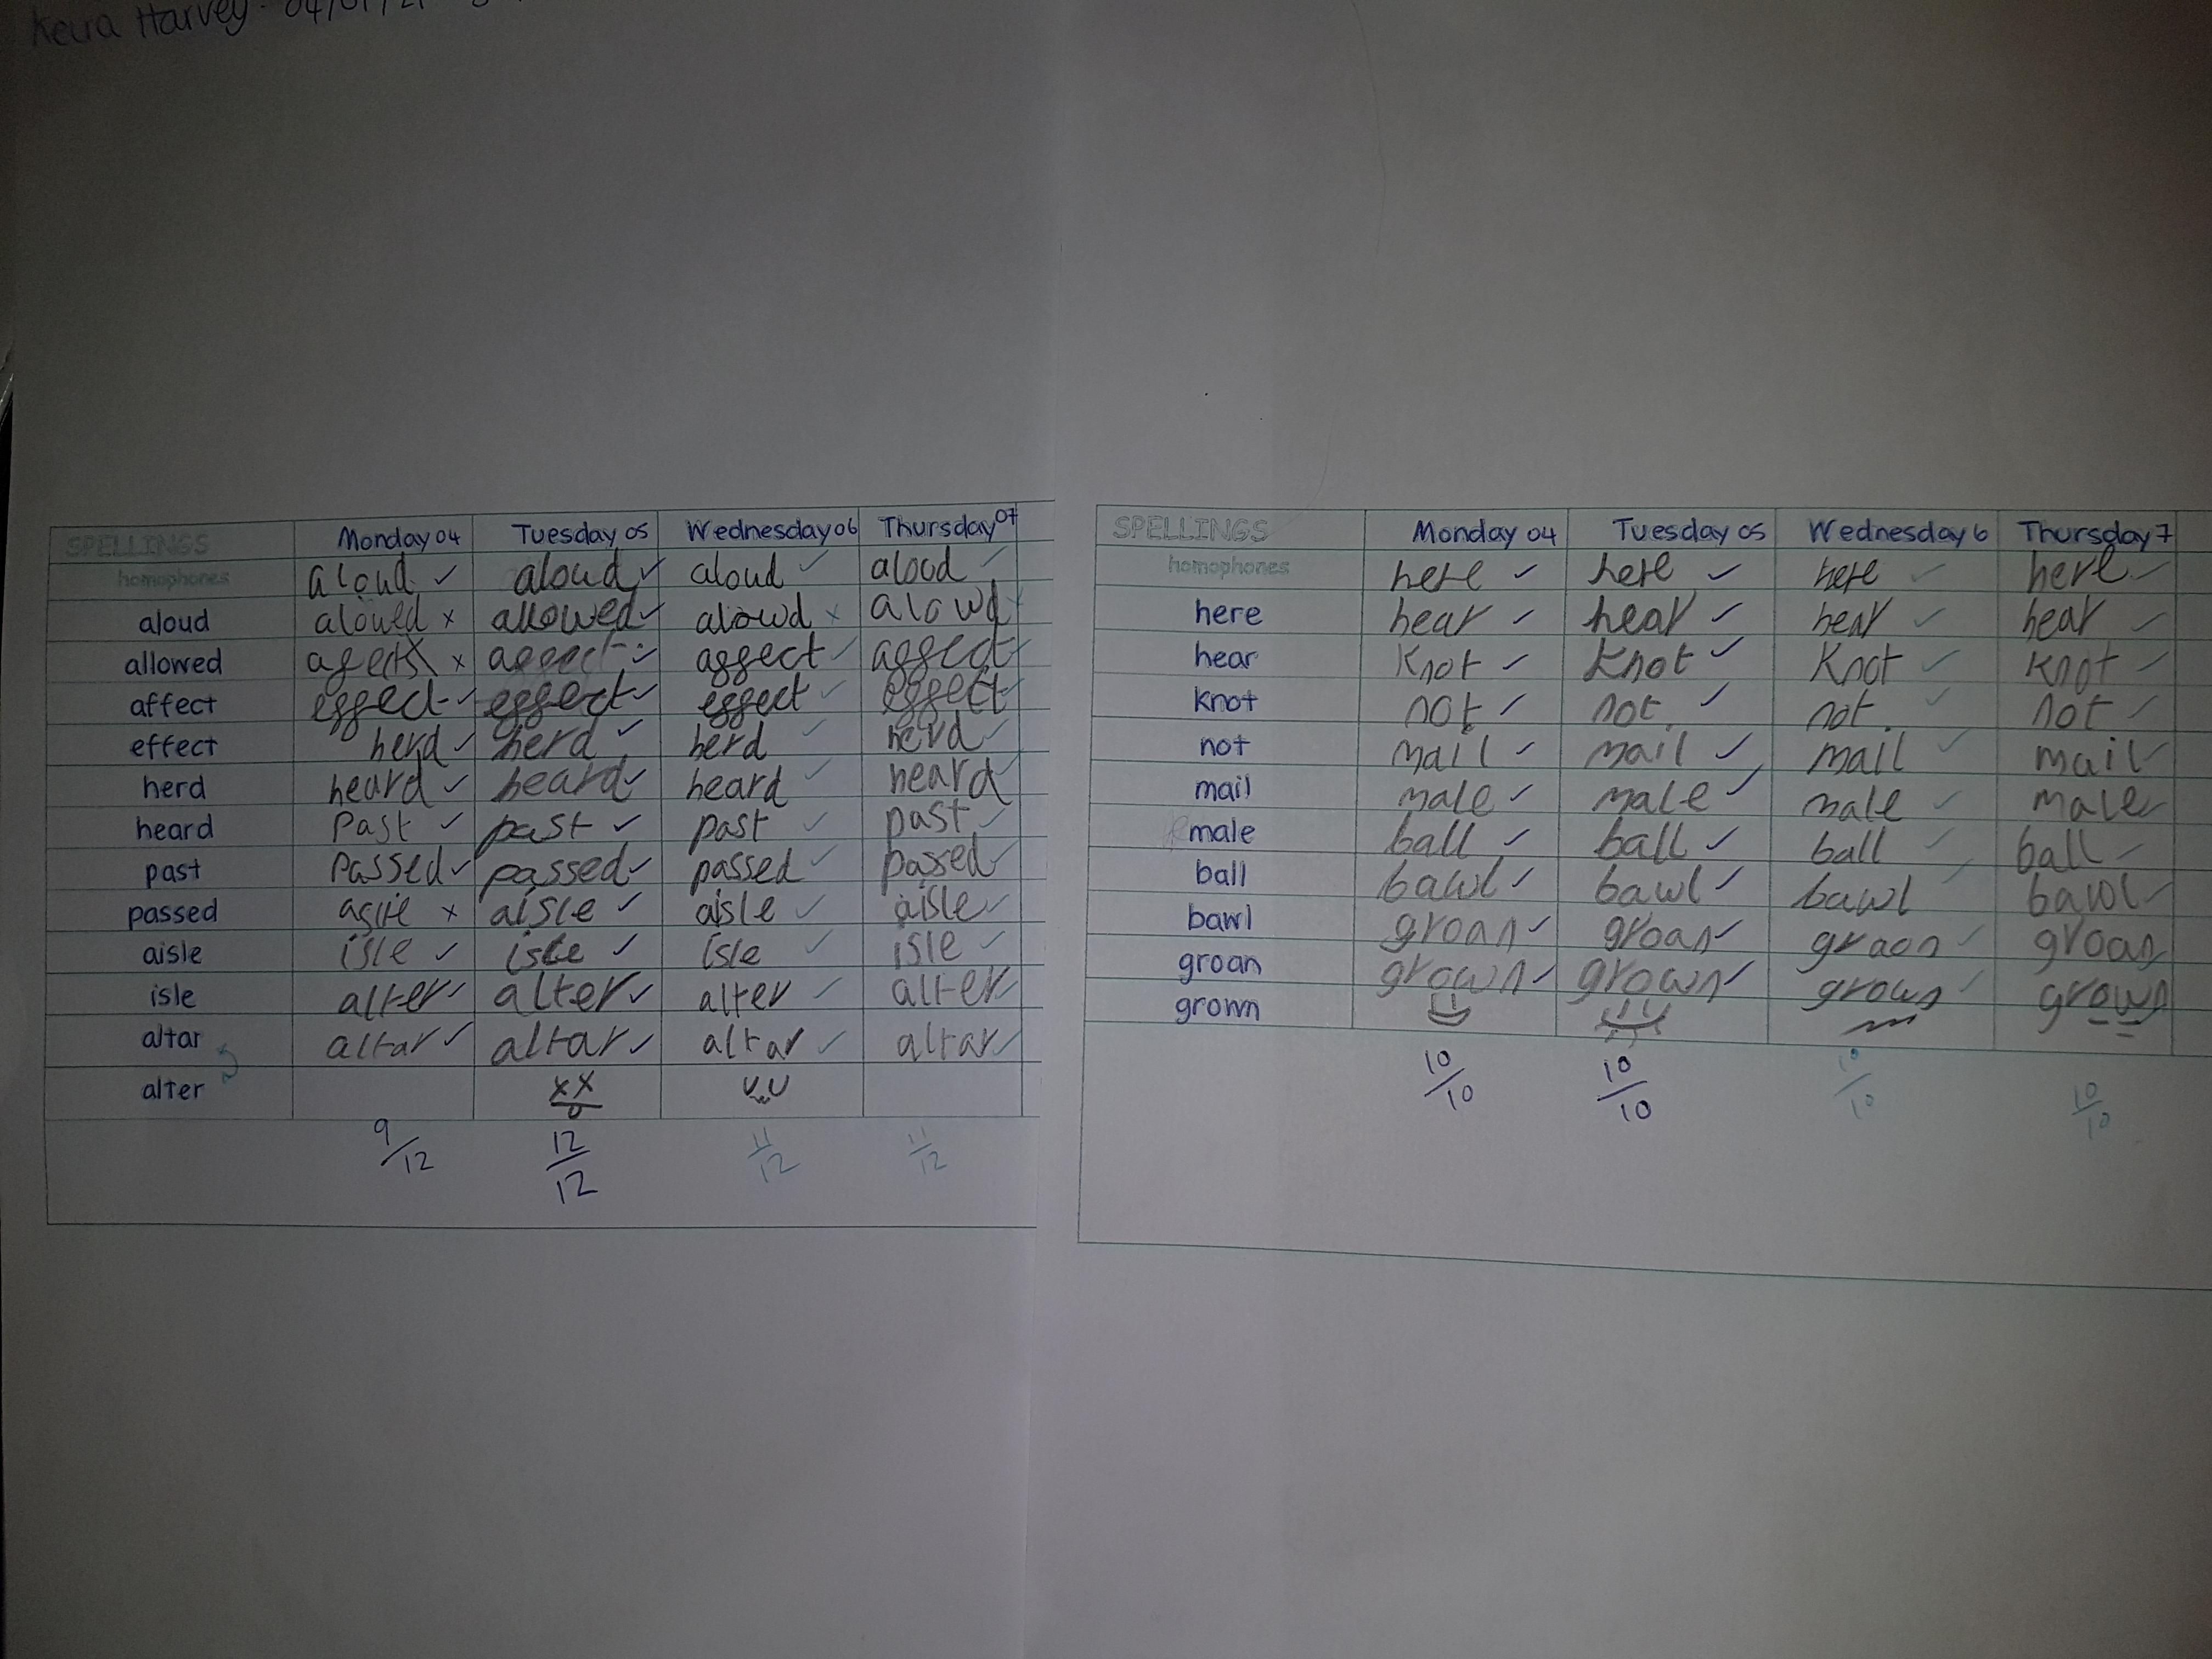 Keira Harvey 04/01/21
SPELLINGS Monday 04 Tuesday 05 Wednesday 06 Thursday 07
homophones aloud ✓ aloud ✓ aloud ✓ aloud ✓
aloud alowed x allowed ✓ alowd x alowd x
allowed x ✓ affect ✓ affect ✓
affect effect ✓ effect ✓ effect ✓ effect ✓
effect herd ✓ herd ✓ herd herd ✓
herd heard ✓ heard ✓ heard ✓ heard ✓
heard Past ✓ past ✓ past ✓ past ✓
past Passed ✓ passed ✓ passed ✓ passed ✓
passed x aisle ✓ aisle ✓ aisle ✓
aisle isle ✓ isle ✓ isle ✓ isle ✓
isle alter ✓ alter ✓ alter ✓ alter ✓
altar altar ✓ altar ✓ altar ✓ altar ✓
alter
9/12 12/12 11/12 11/12
SPELLINGS Monday 04 Tuesday 05 Wednesday 6 Thursday 7
homophones here ✓ here ✓ here ✓ here ✓
here hear ✓ hear ✓ hear ✓ hear ✓
hear Knot ✓ Knot ✓ Knot ✓ Knot ✓
knot not ✓ not ✓ not ✓ not ✓
not mail ✓ mail ✓ mail ✓ mail ✓
mail male ✓ male ✓ male ✓ male ✓
male ball ✓ ball ✓ ball ✓ ball ✓
ball bawl ✓ bawl ✓ bawl ✓ bawl ✓
bawl groan ✓ groan ✓ graon ✓ groan
groan grown ✓ grown ✓ grown ✓ grown
grown
10/10 10/10 10/10 10/10